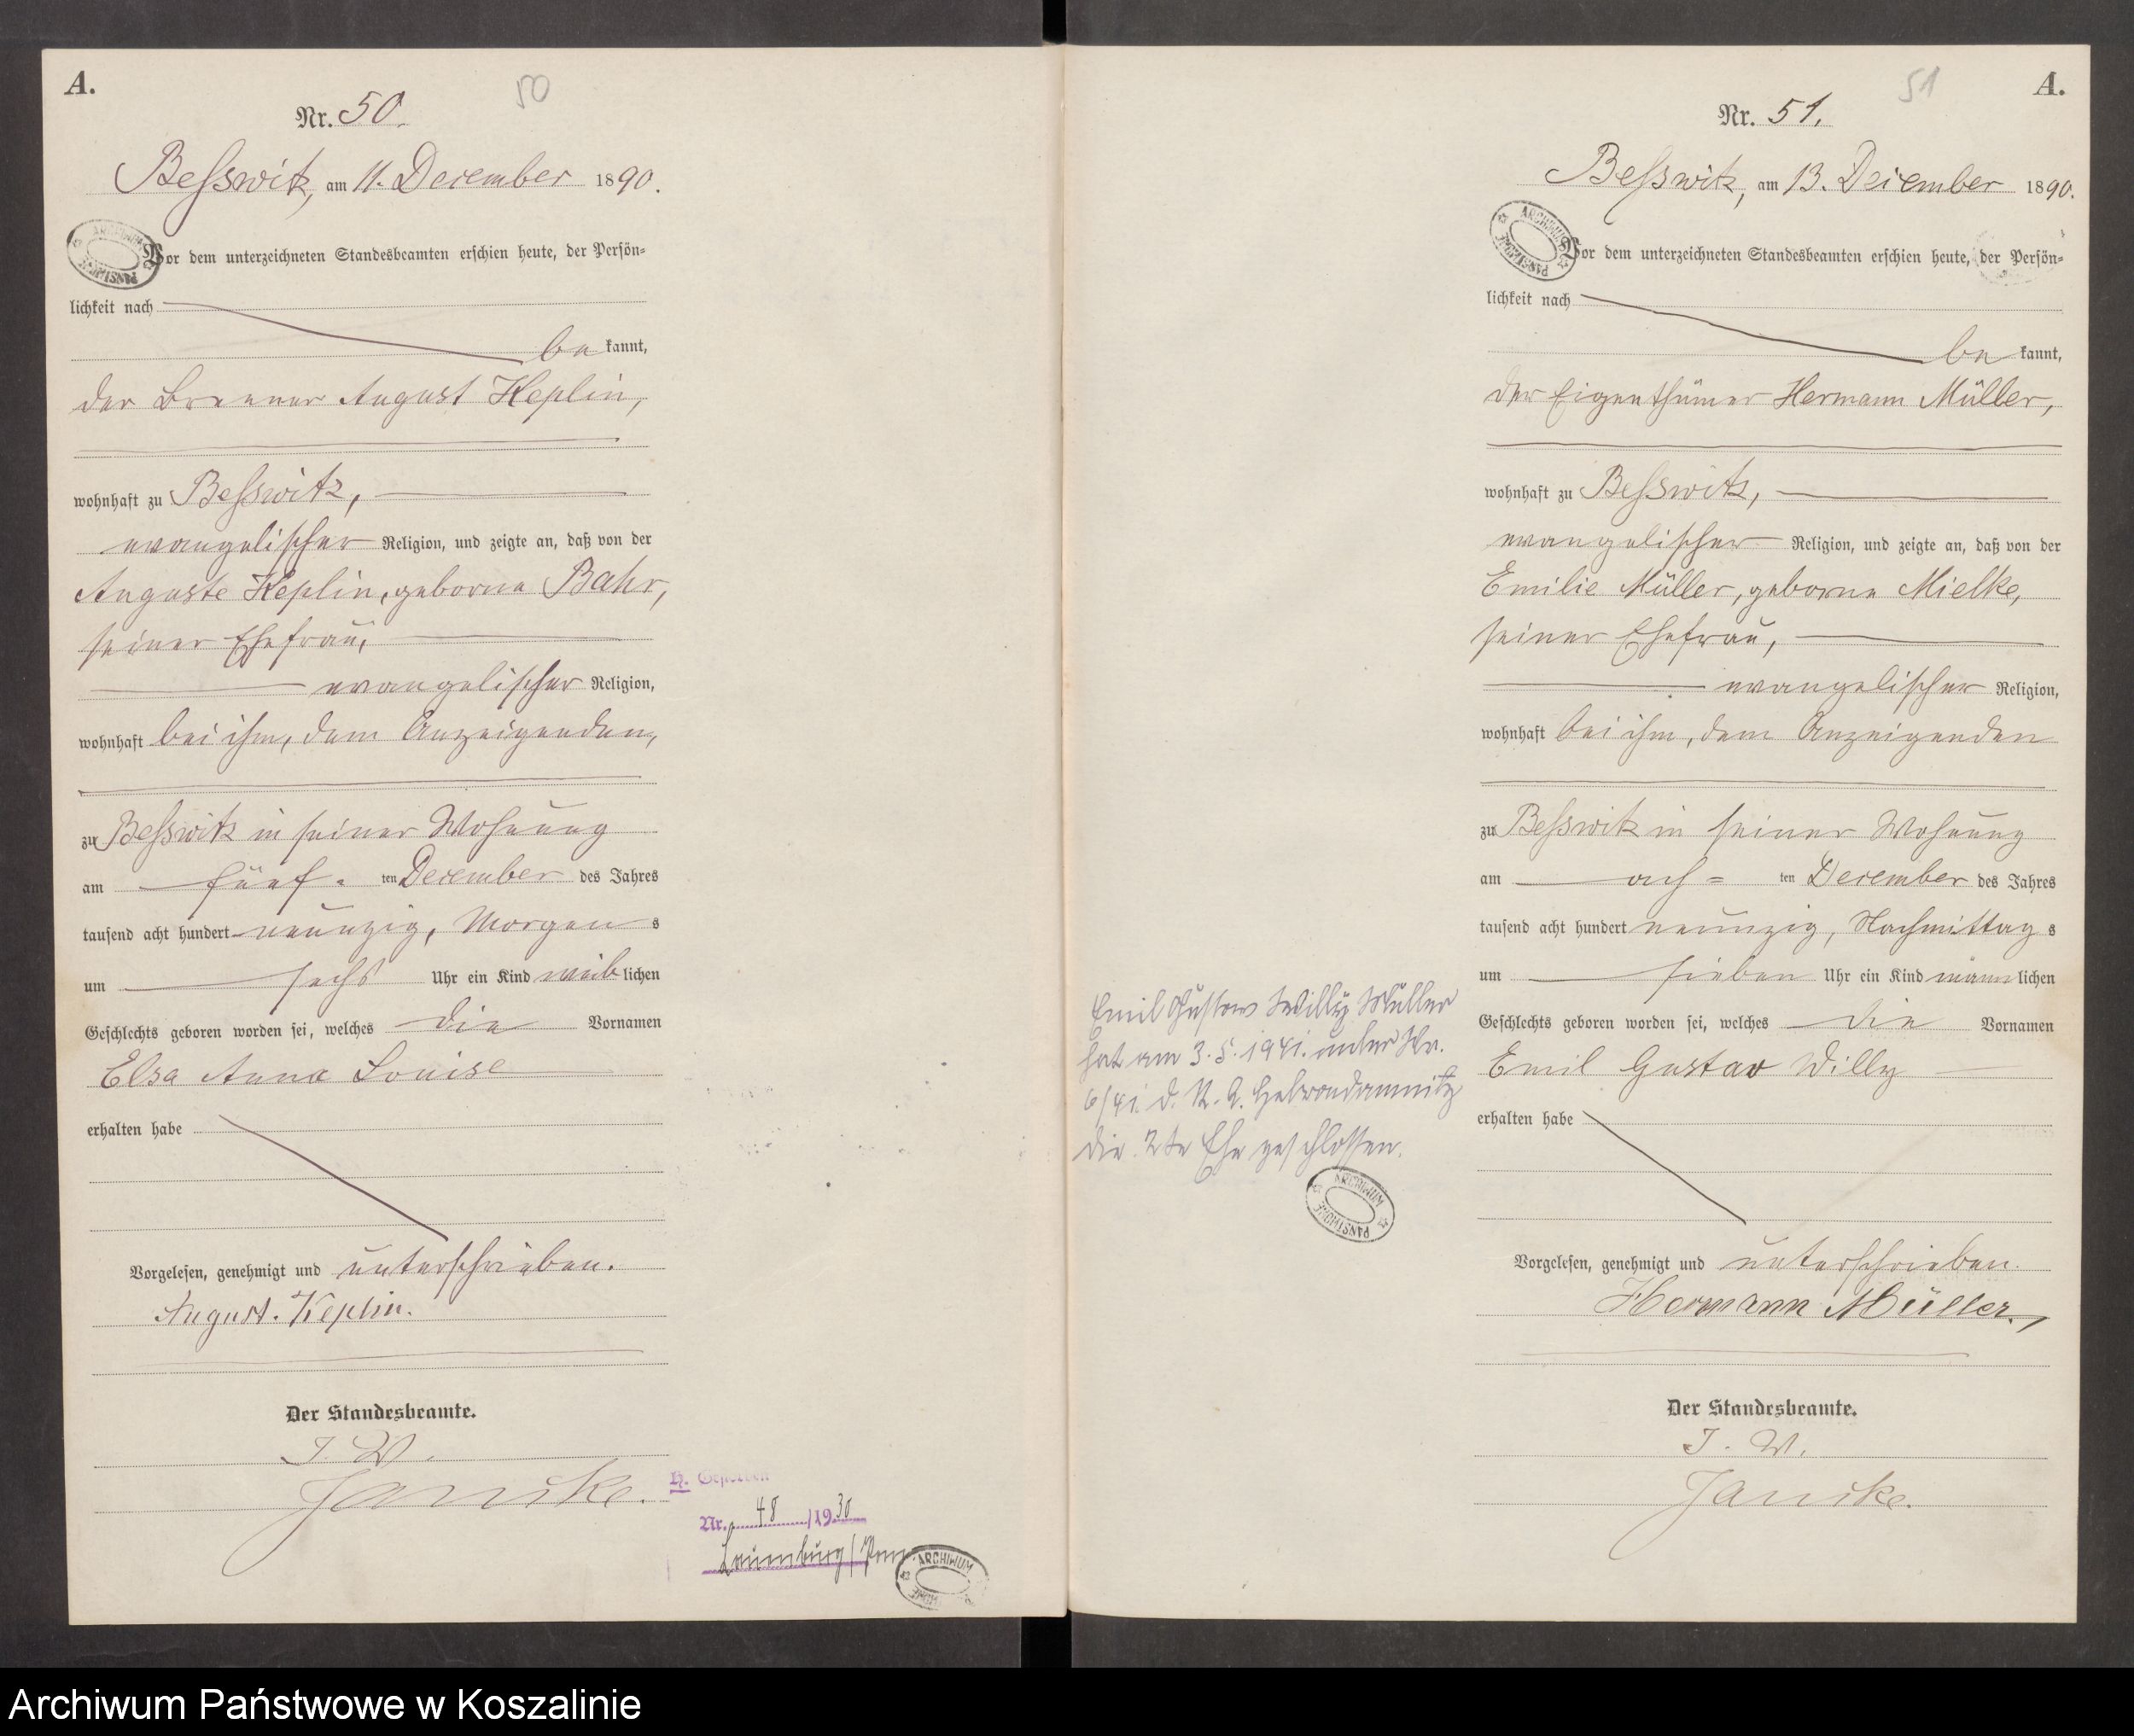 A.
50
Nr. 50.
Besswitz, am 11. December 1890.
Vor dem unterzeichneten Standesbeamten erschien heute, der Persön-
lichkeit nach
be kannt,
der Brenner August Keplin,
wohnhaft zu Besswitz,
evangelischer Religion, und zeigte an, daß von der
Auguste Keplin, geborne Bahr,
seiner Ehefrau,
evangelischer Religion,
wohnhaft bei ihm, dem Anzeigenden,
zu Besswitz in seiner Wohnung
am fünf- ten December des Jahres
tausend acht hundert neunzig, Morgen s
um sechs Uhr ein Kind weib lichen
Geschlechts geboren worden sei, welches die Vornamen
Elsa Anna Louise
erhalten habe
Vorgelesen, genehmigt und unterschrieben.
August. Keplin.
Der Standesbeamte.
J. W.
Janike.
Nr. 48 /1930
Lauenburg / Pom
ARCHIWUM PAŃSTWOWE
51
A.
Nr. 51.
Besswitz, am 13. December 1890.
Vor dem unterzeichneten Standesbeamten erschien heute, der Persön-
lichkeit nach
be kannt,
der Eigenthümer Hermann Müller,
wohnhaft zu Besswitz,
evangelischer Religion, und zeigte an, daß von der
Emilie Müller, geborne Mielke,
seiner Ehefrau,
evangelischer Religion,
wohnhaft bei ihm, dem Anzeigenden
zu Besswitz in seiner Wohnung
am ach= ten December des Jahres
tausend acht hundert neunzig, Nachmittag s
um sieben Uhr ein Kind männ lichen
Geschlechts geboren worden sei, welches die Vornamen
Emil Gustav Willy
erhalten habe
Vorgelesen, genehmigt und unterschrieben.
Hermann Müller.,
Der Standesbeamte.
J. W.
Janike.
Emil Gustav Willy Müller
hat am 3.5.1941. unter Nr.
6/41 d. St. A. Hebrondamnitz
die 2te Ehe geschlossen.
ARCHIWUM PAŃSTWOWE
Archiwum Państwowe w Koszalinie